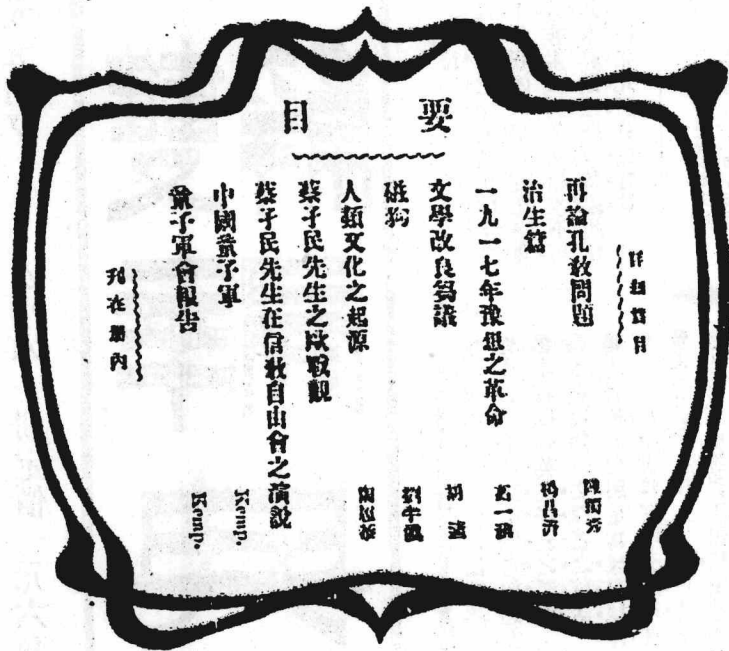 要目
再論孔教問題 陳獨秀
治生篇 楊昌濟
一九一七年豫想之革命 高一涵
文學改良芻議 胡適
磁狗 劉半儂
人類文化之起源 陶履恭
蔡孑民先生之歐戰觀
蔡孑民先生在信教自由會之演說
中國童子軍 Kemp.
童子軍會報告 Kemp.
列在册內